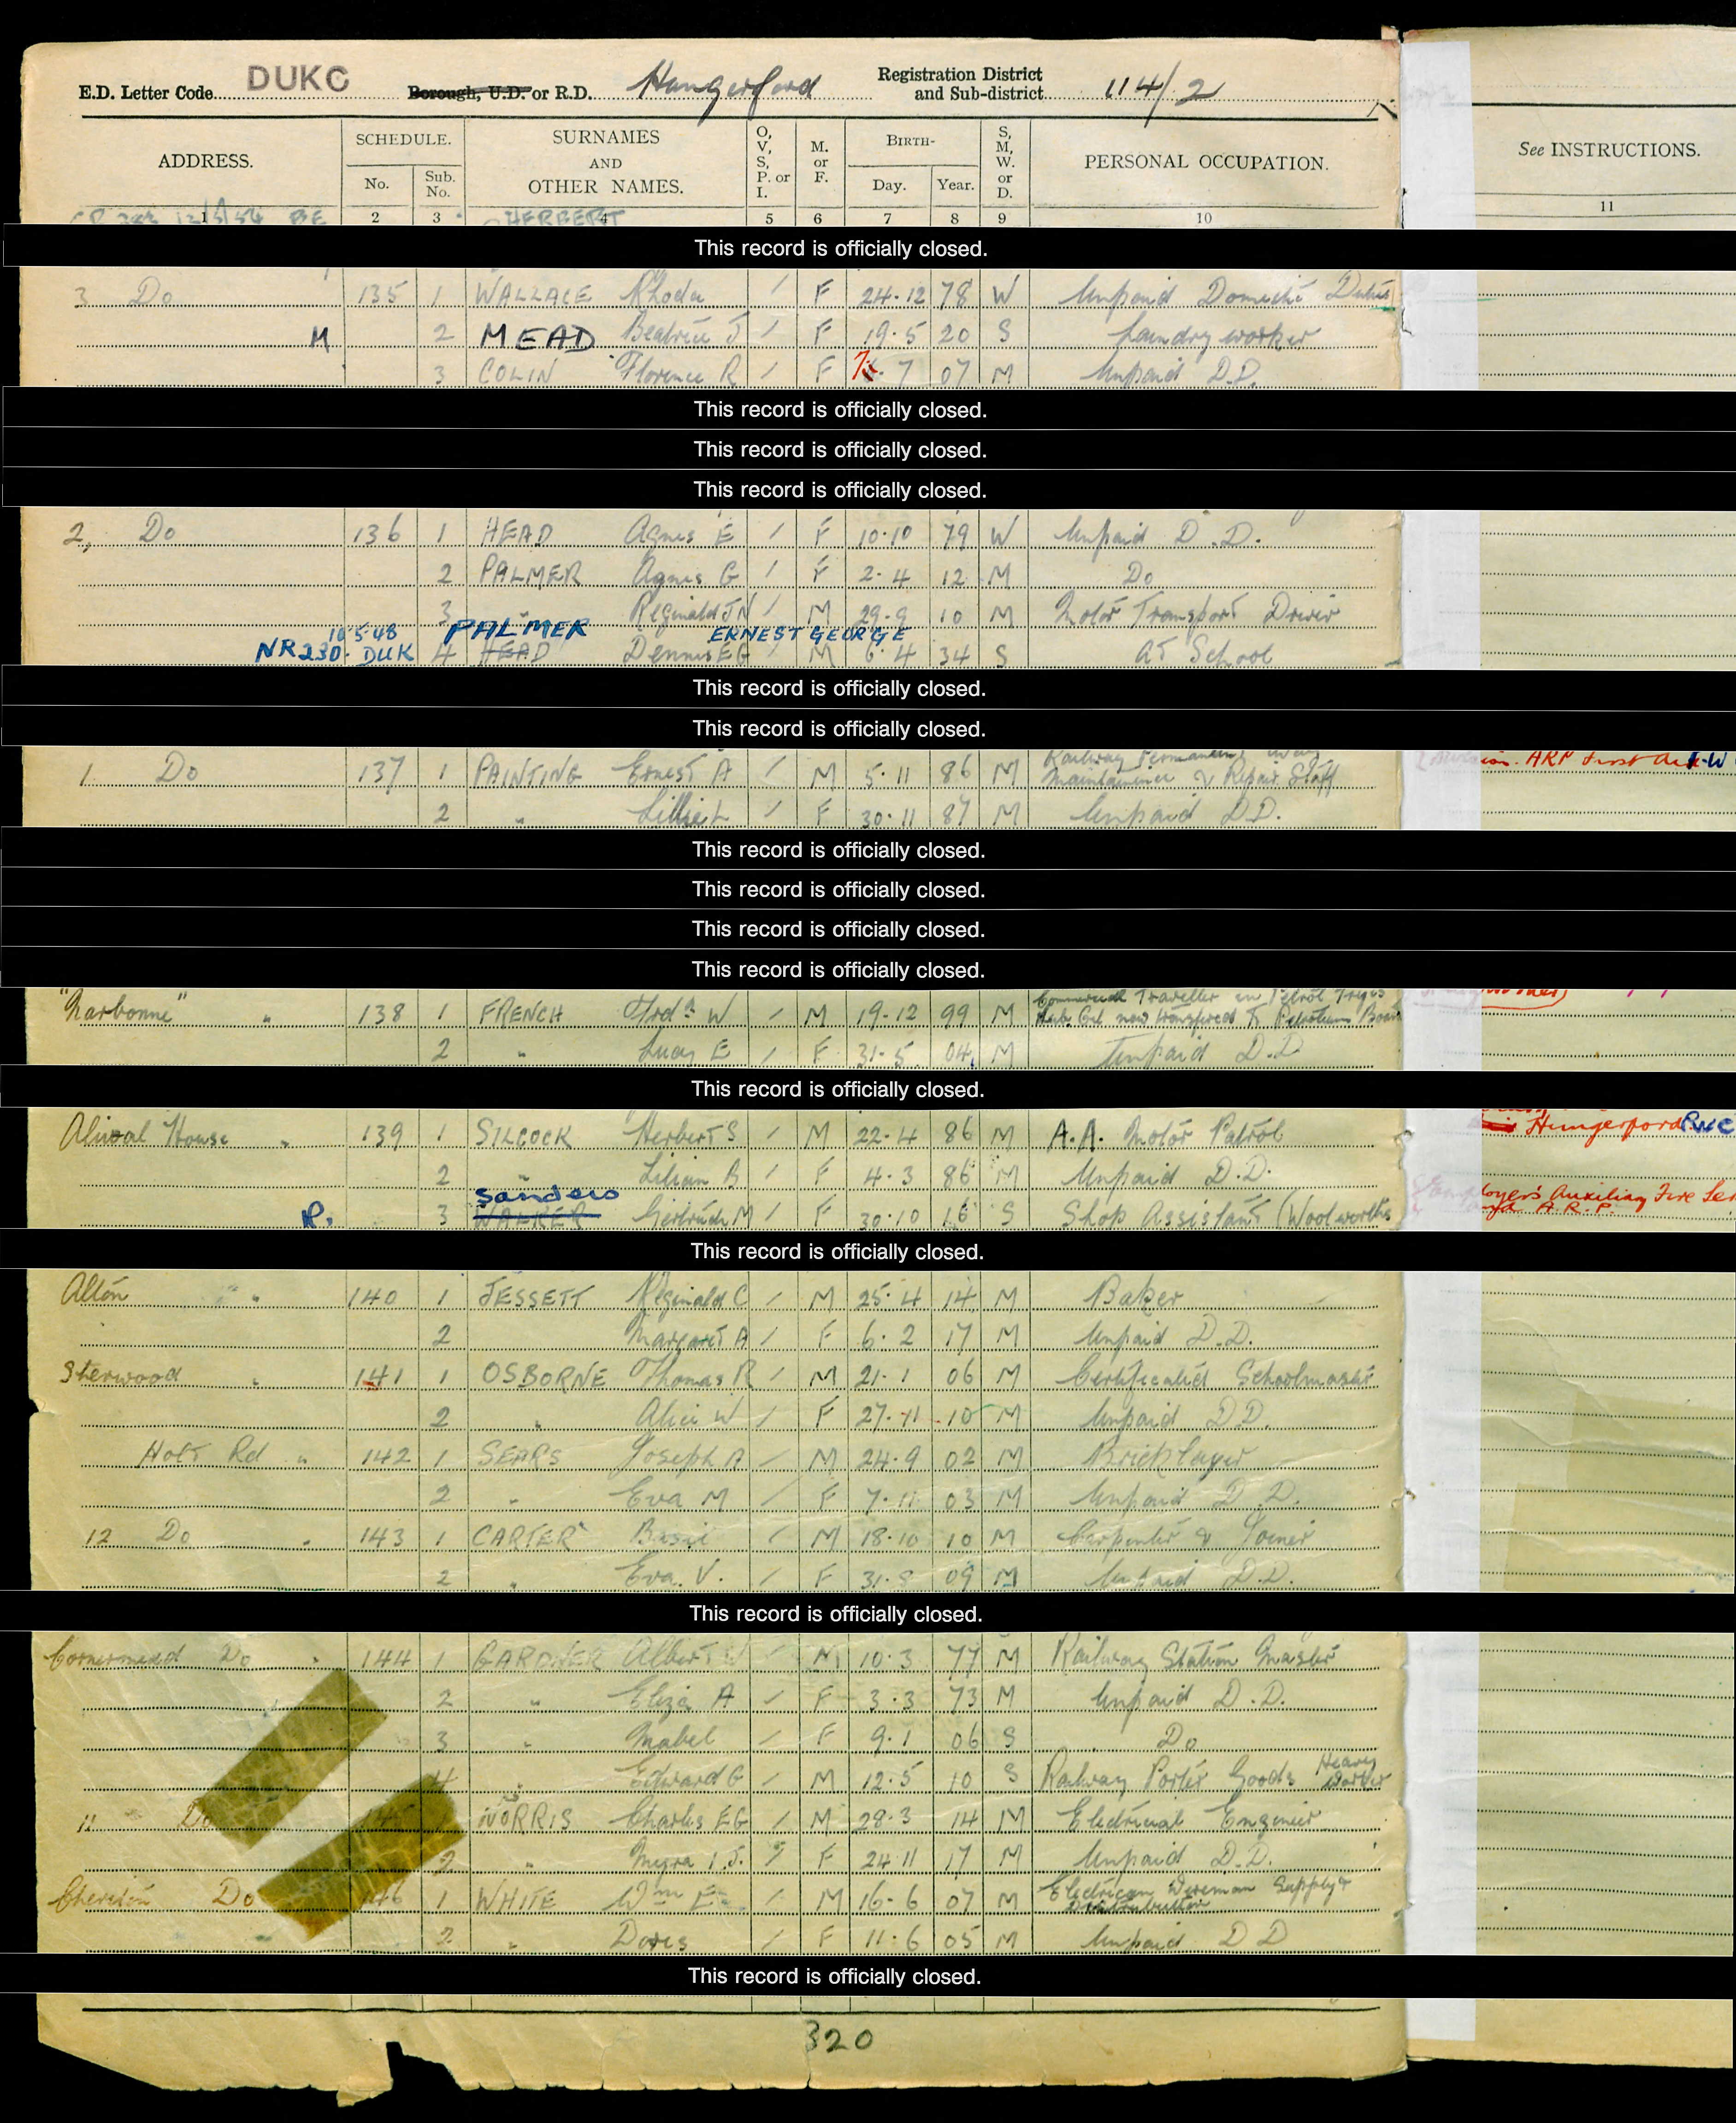 E.D. Letter Code DUKC Borough, U.D. or R.D. Hungerford Registration District and Sub-district 114/2
ADDRESS. SCHEDULE. No. Sub. No. SURNAMES AND OTHER NAMES. O, V, S, P. or I. M. or F. BIRTH- Day. Year. S, M, W. or D. PERSONAL OCCUPATION. See INSTRUCTIONS.
1 2 3 4 5 6 7 8 9 10 11
HERBERT
This record is officially closed.
3 Do 135 1 WALLACE Rhoda / F 24.12 78 W Unpaid Domestic Duties
M 2 MEAD Beatrice J / F 19.5 20 S Laundry worker
3 COLIN Florence R / F 7 07 M Unpaid D.D.
This record is officially closed.
This record is officially closed.
This record is officially closed.
2, Do 136 1 HEAD Agnes E / F 10.10 79 W Unpaid D.D.
2 PALMER Agnes G / F 2.4 12 M Do
3 " Reginald J N / M 29.9 10 M Motor Transport Driver
10.5.48 PALMER ERNEST GEORGE
NR230. DUK 4 HEAD Dennis E G / M 6.4 34 S At School
This record is officially closed.
This record is officially closed.
Railway Permanent Way
1 Do 137 1 PAINTING Ernest A / M 5.11 86 M Maintainance & Repair Staff ARP First Aid
2 " Lillie L / F 30.11 87 M Unpaid D.D.
This record is officially closed.
This record is officially closed.
This record is officially closed.
This record is officially closed.
Commercial Traveller in Petrol
"Narbonne" " 138 1 FRENCH Fredk W / M 19.12 99 M now transferred to Petroleum Board
2 " Lucy E / F 31.5 04 M Unpaid D.D
This record is officially closed.
Aliwal House " 139 1 SILCOCK Herbert S / M 22.4 86 M A.A. Motor Patrol Hungerford RDC
2 " Lilian B / F 4.3 86 M Unpaid D.D.
Sanders
R. 3 WALKER Gertrude M / F 30.10 16 S Shop Assistant (Woolworths Auxiliary Fire Ser
A.R.P.
This record is officially closed.
Alton " 140 1 JESSETT Reginald C / M 25.4 14 M Baker
2 Margaret A / F 6.2 17 M Unpaid D.D.
Sherwood " 141 1 OSBORNE Thomas R / M 21.1 06 M Certificated Schoolmaster
2 " Alice W / F 27.11 10 M Unpaid D.D.
Holt Rd " 142 1 SEARS Joseph A / M 24.9 02 M Bricklayer
2 " Eva M / F 7.11 03 M Unpaid D.D.
12 Do " 143 1 CARTER Basil / M 18.10 10 M Carpenter & Joiner
2 " Eva. V. / F 31.8 09 M Unpaid D.D.
This record is officially closed.
Cornermead Do " 144 1 GARDNER Albert W / M 10.3 77 M Railway Station Master
2 " Eliza A / F 3.3 73 M Unpaid D.D.
3 " Mabel / F 9.1 06 S Do
4 " Edward G / M 12.5 10 S Railway Porter Goods Heavy Worker
11 Do 145 1 NORRIS Charles E G / M 28.3 14 M Electrical Engineer
2 " Myra I. J. / F 24.11 17 M Unpaid D.D.
Cheriton Do 146 1 WHITE Wm E / M 16.6 07 M Electrician Wireman Supply &
Distribution
2 " Doris / F 11.6 05 M Unpaid D D
This record is officially closed.
320